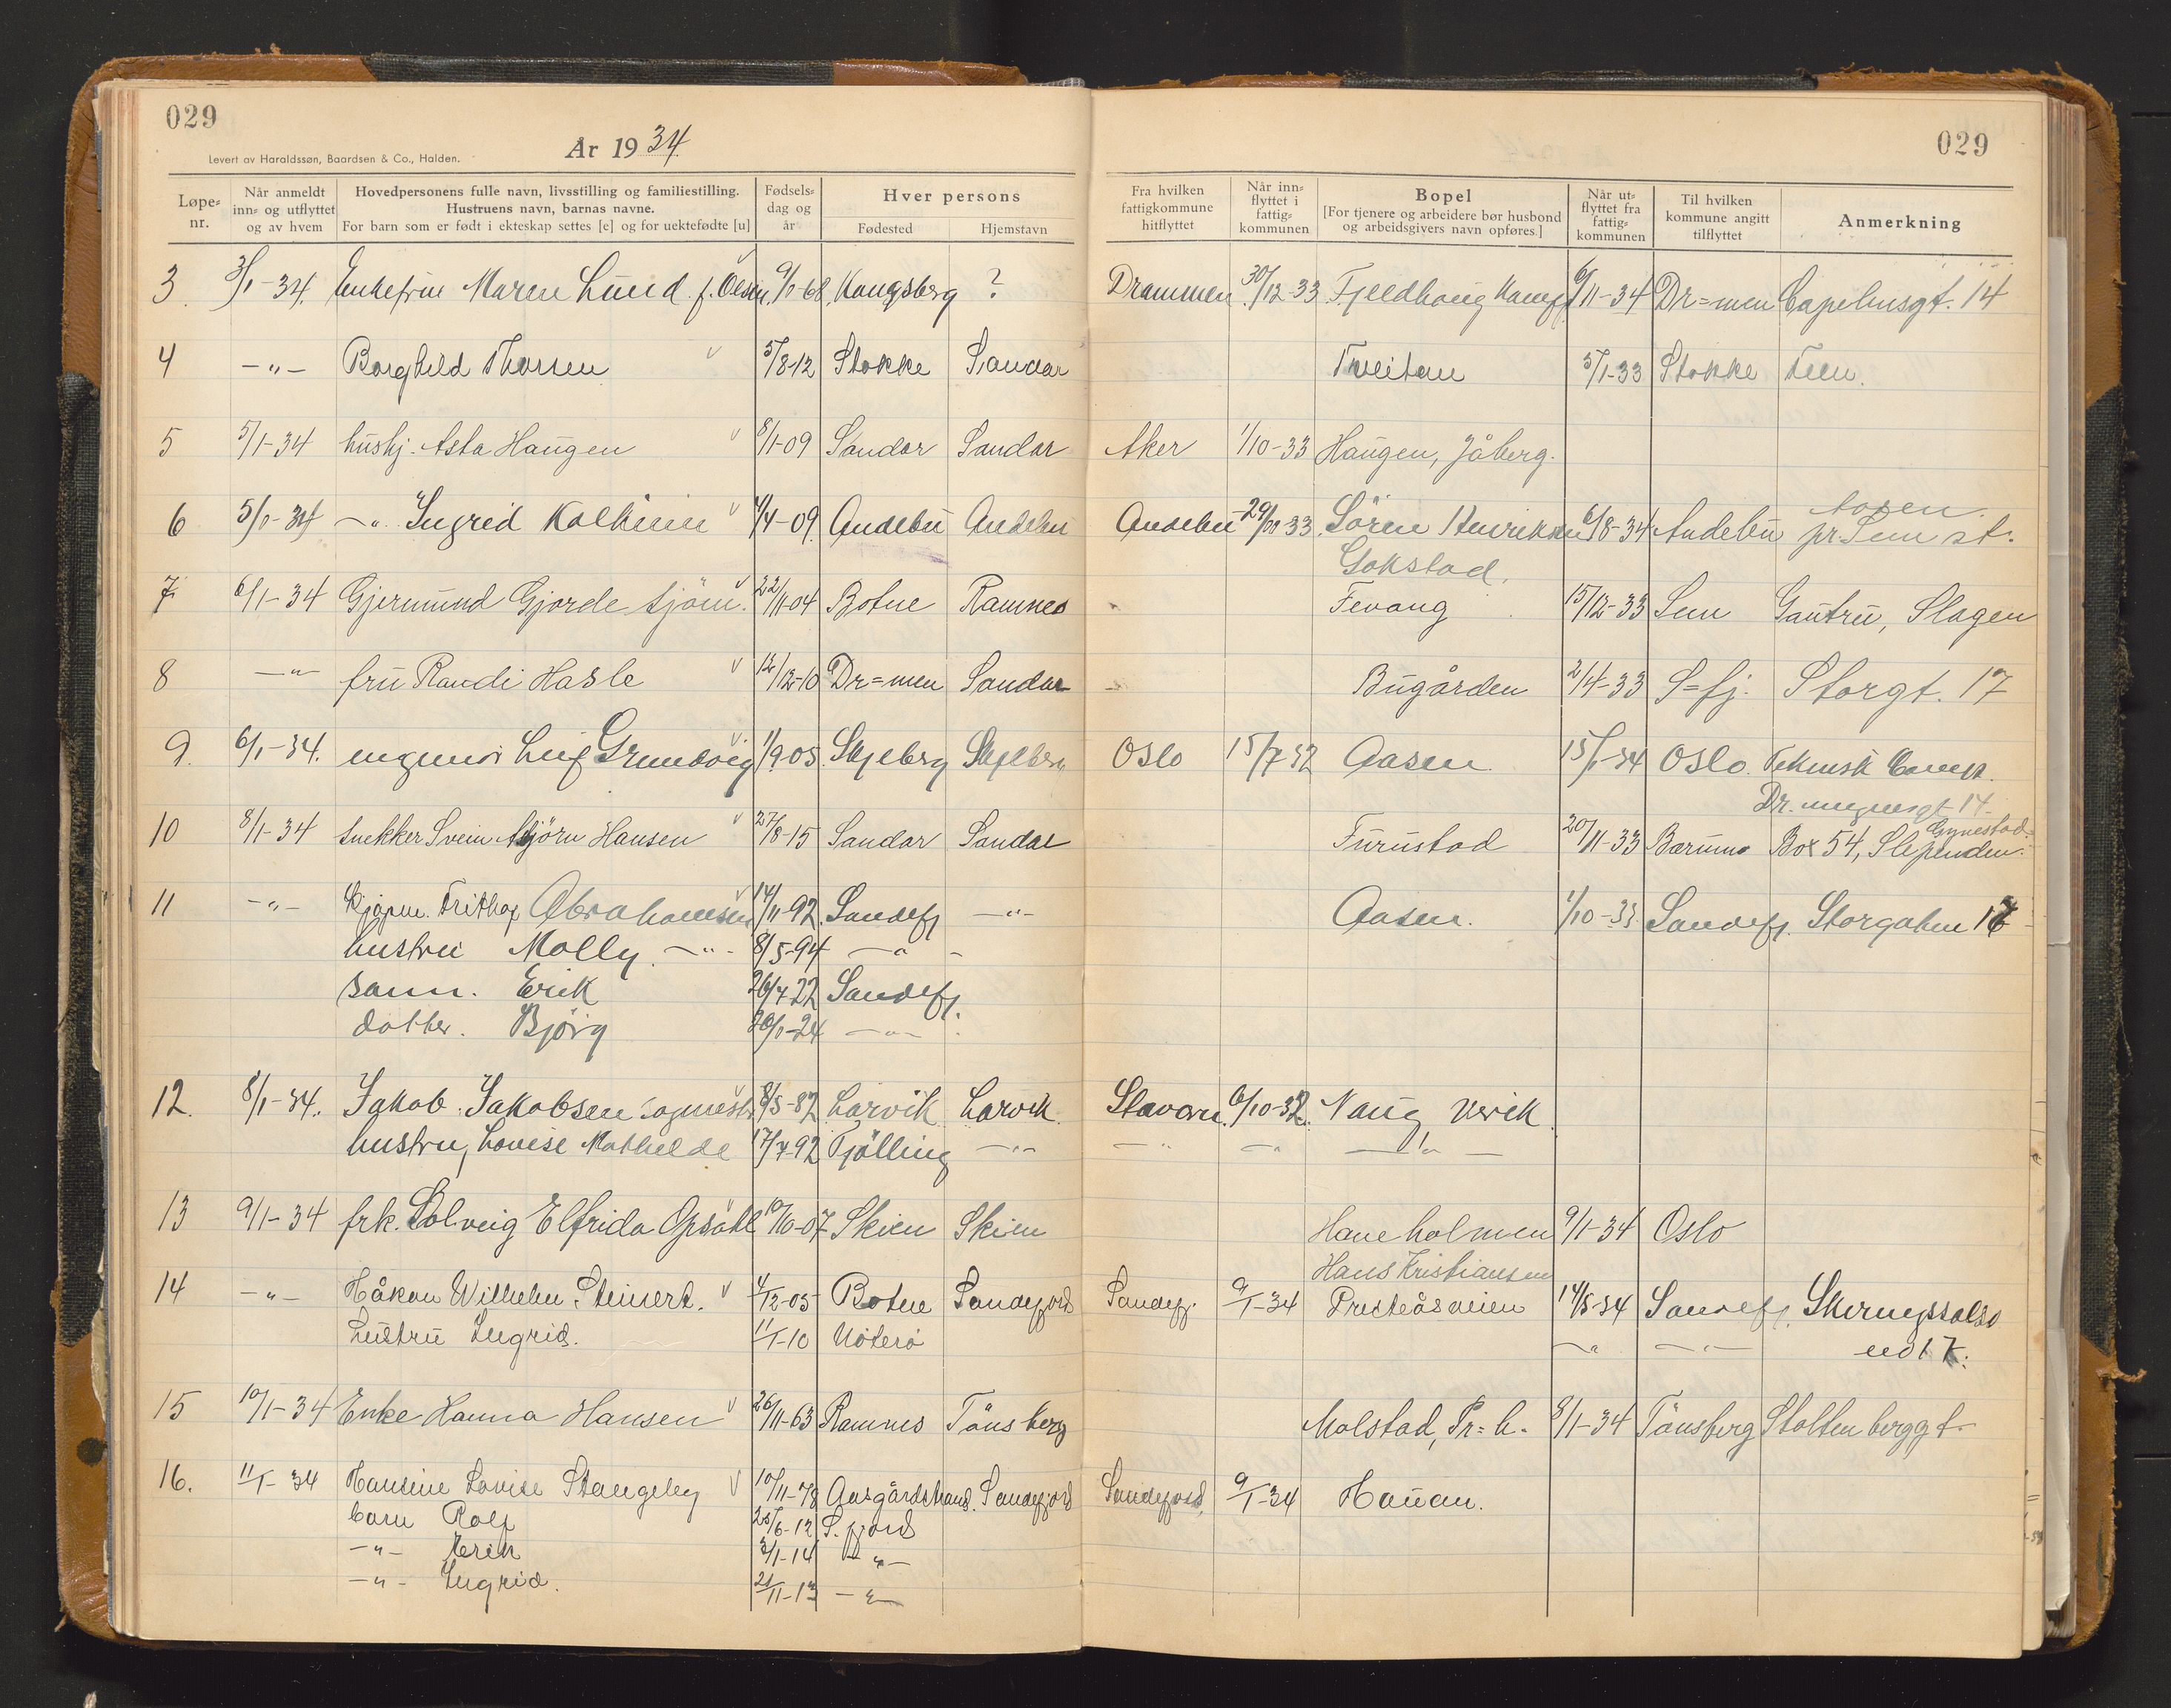 029
År 1934
Levert av Haraldssøn, Baardsen & Co., Halden.
Løpe-nr.
Når anmeldt inn- og utflyttet og av hvem
Hovedpersonens fulle navn, livsstilling og familiestilling.
Hustruens navn, barnas navne.
For barn som er født i ekteskap settes [e] og for uektefødte [u]
Fødsels-dag og år
Hver persons
Fødested
Hjemstavn
029
Fra hvilken fattigkommune hitflyttet
Når inn-flyttet i fattig-kommunen
Bopel
[For tjenere og arbeidere bør husbond og arbeidsgivers navn opføres.]
Når ut-flyttet fra fattig-kommunen
Til hvilken kommune angitt tilflyttet
Anmerkning
3 3/1-34. Enkefrue Maren Lund f. Olsen 9/1-68 Kongsberg ? Drammen 30/12-33 Fjeldhaug 6/11-34 Dr=men Capelensgt. 14
4 -"- Borghild Thorsen 5/8-12 Stokke Sandar Tveitan 5/1-33 Stokke Feen.
5 5/1-34 hushj. Asta Haugen 8/1-09 Sandar Sandar Aker 1/10-33 Haugen, Jåberg.
Aasen
6 5/1-34 -"- Ingrid 4/4-09 Andebu Andebu Andebu 29/11-33 Søren Henriksen 6/8-34 Andebu pr. Sem st.
Gokstad.
7 6/1-34 Gjermund Gjorde sjøm. 22/11-04 Botne Ramnes Fevang 15/12-33 Sem Gautru, Slagen
8 -"- fru Randi Hasle 12/12-10 Dr=men Sandar Bugården 2/4-33 S=fj. Storgt. 17
9. 6/1-34. ingeniør Leif Grundvig 1/9-05 Skjeberg Skjeberg Oslo 15/7-32 Aasen 15/1-34 Oslo. Teknisk Comp.
Dr. 14
10 8/1-34 snekker Svein Asbjørn Hansen 27/8-15 Sandar Sandar Furustad 20/11-33 Bærums Box 54, Slependen.
11 -"- Kjøpm. Frithjof Abrahamsen 14/11-92 Sandefj -"- Aasen. 1/10-33 Sandefj. Storgaten 17
hustru Molly -"- 8/5-94 -"-
sønn. Erik 26/4-22 Sandefj.
datter. Bjørg 30/1-24 -"-
12. 8/1-34. Jakob Jakobsen 8/5-87 Larvik Larvik Stavern 6/10-32. Haug, Vesvik
hustru, Lovise Mathilde 17/7-92 Tjølling -"- -"- -"- -"-
13 9/1-34 frk. Solveig Elfrida Opsahl 10/10-07 Skien Skien Haneholmen 9/1-34 Oslo
Hans Kristiansen
14 -"- Håkon Wilhelm Steinert. 4/12-05 Botne Sandefjord Sandefj. 9/1-34 Presteåsveien 14/8-34 Sandefj. Skiringssals
hustru Ingrid. 11/1-10 Nøterø -"- -"- 17.
15 10/1-34 Enke Hanna Hansen 26/11-63 Ramnes Tønsberg Molstad, Pr=h. 8/1-34 Tønsberg Stoltenberggt.
16. 11/1-34 Hansine Lovise Stangeby 10/11-78 Aasgårdstrand. Sandefjord Sandefjord 9/1-34 Hauan.
barn Rolf 25/6-12 S. fjord
-"- Erik 3/1-14 -"-
-"- Ingrid. 21/11-17 -"-